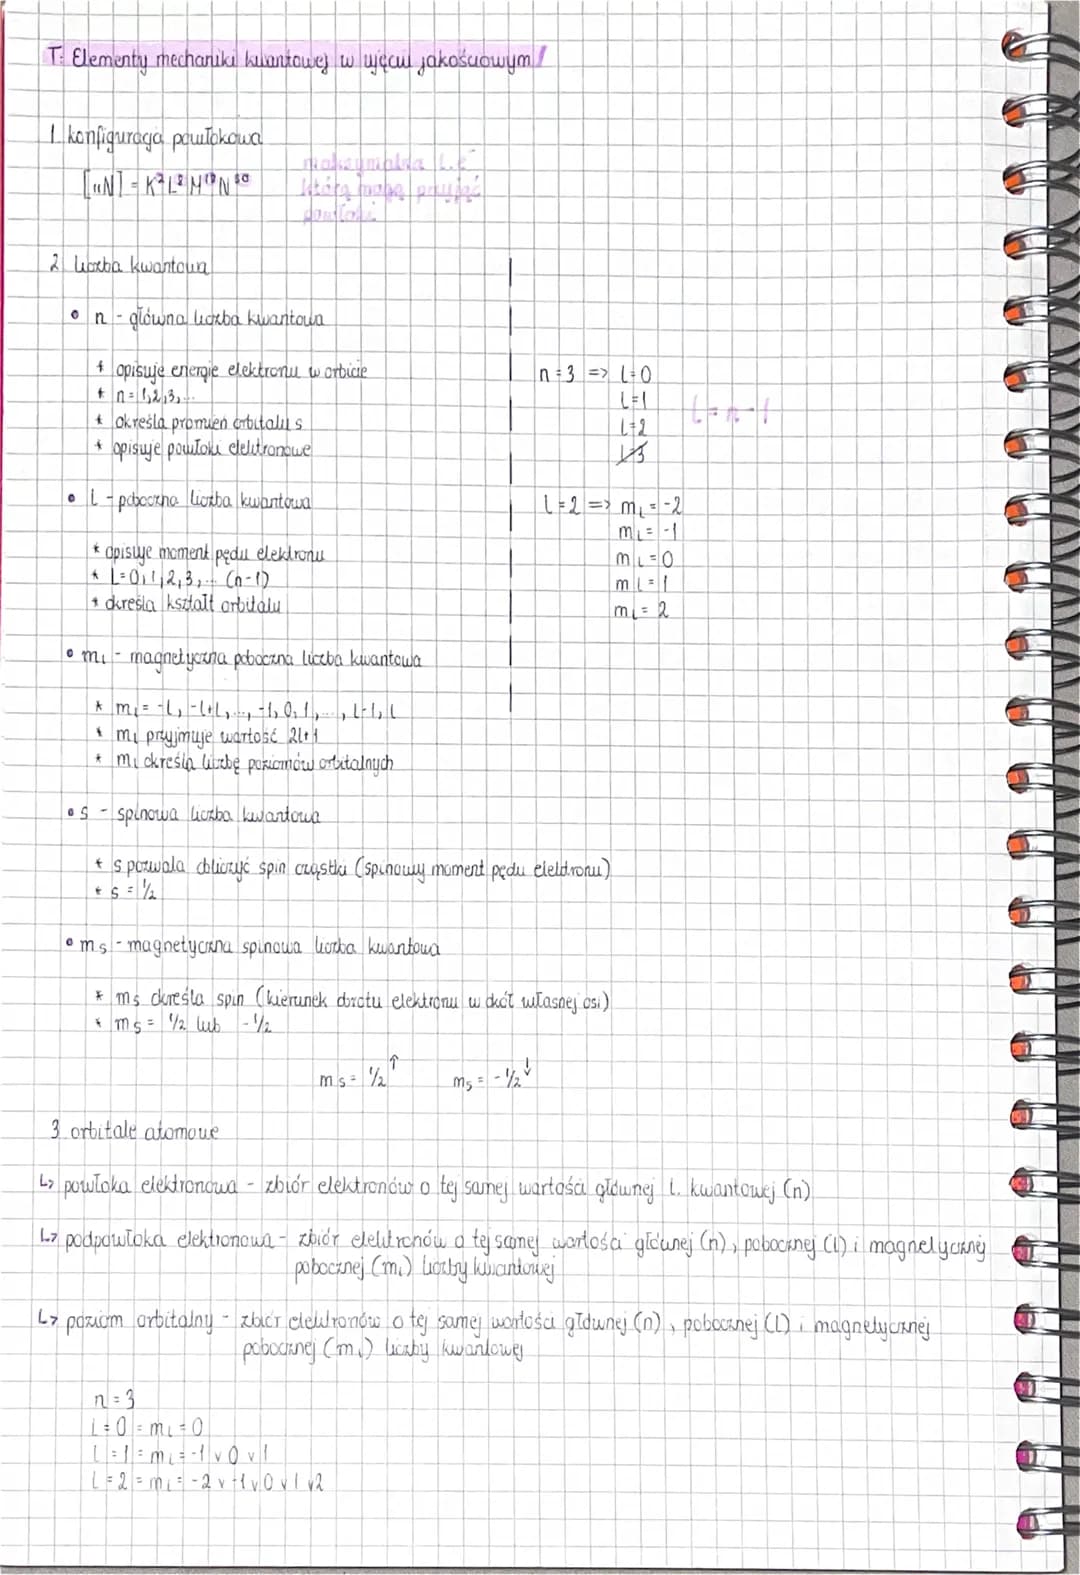 T: Elementy mechaniki kwantowej w ujęciu jakościowym!
1. konfiguracja powłokowa
[₁₁N] = K² L⁸ M¹⁸ N³⁰
maksymalna l. e⁻
którą mogą przyjąć
powłoki
2. liczba kwantowa
• n - główna liczba kwantowa
* opisuje energie elektronu w orbicie
* n = 1,2,3,...
* określa promień orbitalu s
* opisuje powłoki elektronowe
n = 3 => l = 0
l = 1
l = 2
l = 3
l = n - 1
• l - poboczna liczba kwantowa
* opisuje moment pędu elektronu
* l = 0,1,2,3,... (n-1)
* określa kształt orbitalu
l = 2 => mₗ = -2
mₗ = -1
mₗ = 0
mₗ = 1
mₗ = 2
• mₗ - magnetyczna poboczna liczba kwantowa
* mₗ = -l, -l+l, ..., -1, 0, 1, ..., l-1, l
* mₗ przyjmuje wartość 2l+1
* mₗ określa liczbę poziomów orbitalnych
• s - spinowa liczba kwantowa
* s pozwala obliczyć spin cząstki (spinowy moment pędu elektronu)
* s = ½
• ms - magnetyczna spinowa liczba kwantowa
* ms określa spin (kierunek obrotu elektronu w okół własnej osi)
* ms = ½ lub -½
ms = ½ ↑ ms = -½ ↓
3. orbitale atomowe
↳ powłoka elektronowa - zbiór elektronów o tej samej wartości głównej l. kwantowej (n)
↳ podpowłoka elektronowa - zbiór elektronów o tej samej wartości głównej (n), pobocznej (l) i magnetycznej
pobocznej (mₗ) liczby kwantowej
↳ poziom orbitalny - zbiór elektronów o tej samej wartości głównej (n), pobocznej (l) i magnetycznej
pobocznej (mₗ) liczby kwantowej
n = 3
l = 0 = mₗ = 0
l = 1 = mₗ = -1 v 0 v 1
l = 2 = mₗ = -2 v -1 v 0 v 1 v 2